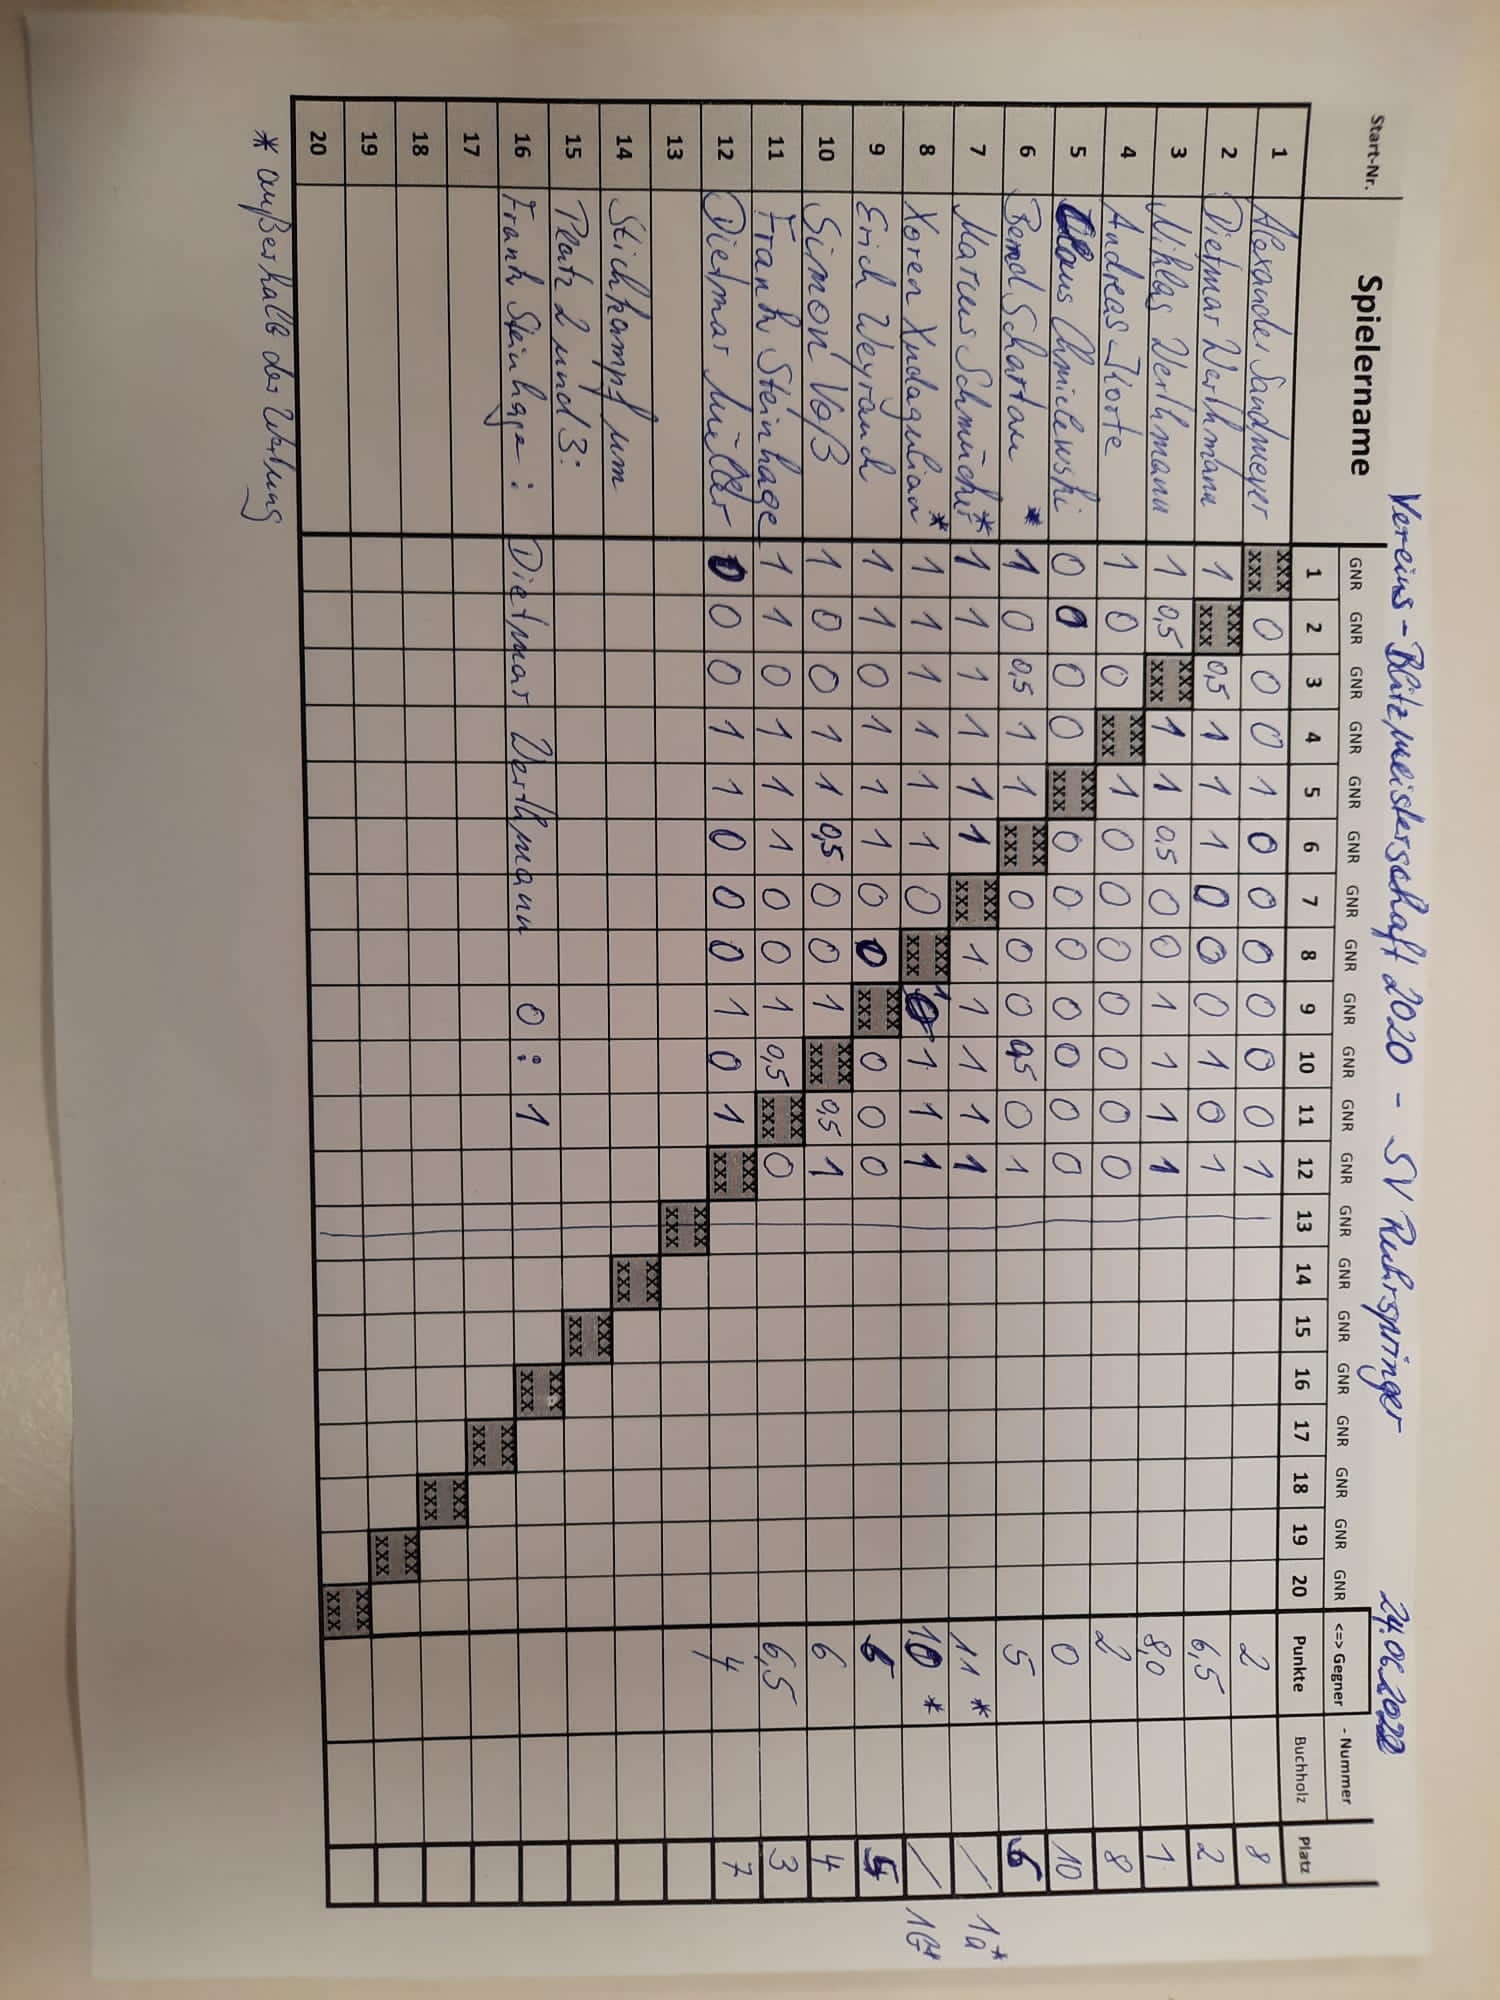 Vereins-Blitzmeisterschaft 2020 - SV Ruhrspringer 24.06.2022
GNR GNR GNR GNR GNR GNR GNR GNR GNR GNR GNR GNR GNR GNR GNR GNR GNR GNR GNR GNR <=> Gegner - Nummer
Start-Nr. Spielername 1 2 3 4 5 6 7 8 9 10 11 12 13 14 15 16 17 18 19 20 Punkte Buchholz Platz
1 Alexander Sandmeyer xxx xxx 0 0 0 1 0 0 0 0 0 0 1 2 8
2 Dietmar Werthmann 1 xxx xxx 0,5 1 1 1 0 0 0 1 0 1 6,5 2
3 Niklas Werthmann 1 0,5 xxx xxx 1 1 0,5 0 0 1 1 1 1 8,0 1
4 Andreas Korte 1 0 0 xxx xxx 1 0 0 0 0 0 0 0 2 8
5 Claus Chmielewski 0 0 0 0 xxx xxx 0 0 0 0 0 0 0 0 10
6 Bernd Schartau * 1 0 0,5 1 1 xxx xxx 0 0 0 0,5 0 1 5 6
7 Marius * 1 1 1 1 1 1 xxx xxx 1 1 1 1 1 11 * / 1a*
8 Xoren Xudagulian * 1 1 1 1 1 1 0 xxx xxx 1 1 1 1 10 * /
9 Erich Weyrauch 1 1 0 1 1 1 0 0 xxx xxx 0 0 0 5
10 Simon Voß 1 0 0 1 1 0,5 0 0 1 xxx xxx 0,5 1 6 4
11 Frank Steinhage 1 1 0 1 1 1 0 0 1 0,5 xxx xxx 0 6,5 3
12 Dietmar Müller 0 0 0 1 1 0 0 0 1 0 1 xxx xxx 4 7
13 xxx xxx
14 Stichkampf um xxx xxx
15 Platz 2 und 3: xxx xxx
16 Frank Steinhage : Dietmar Werthmann 0 : 1 xxx xxx
17 xxx xxx
18 xxx xxx
19 xxx xxx
20 xxx xxx
* außerhalb der Wertung